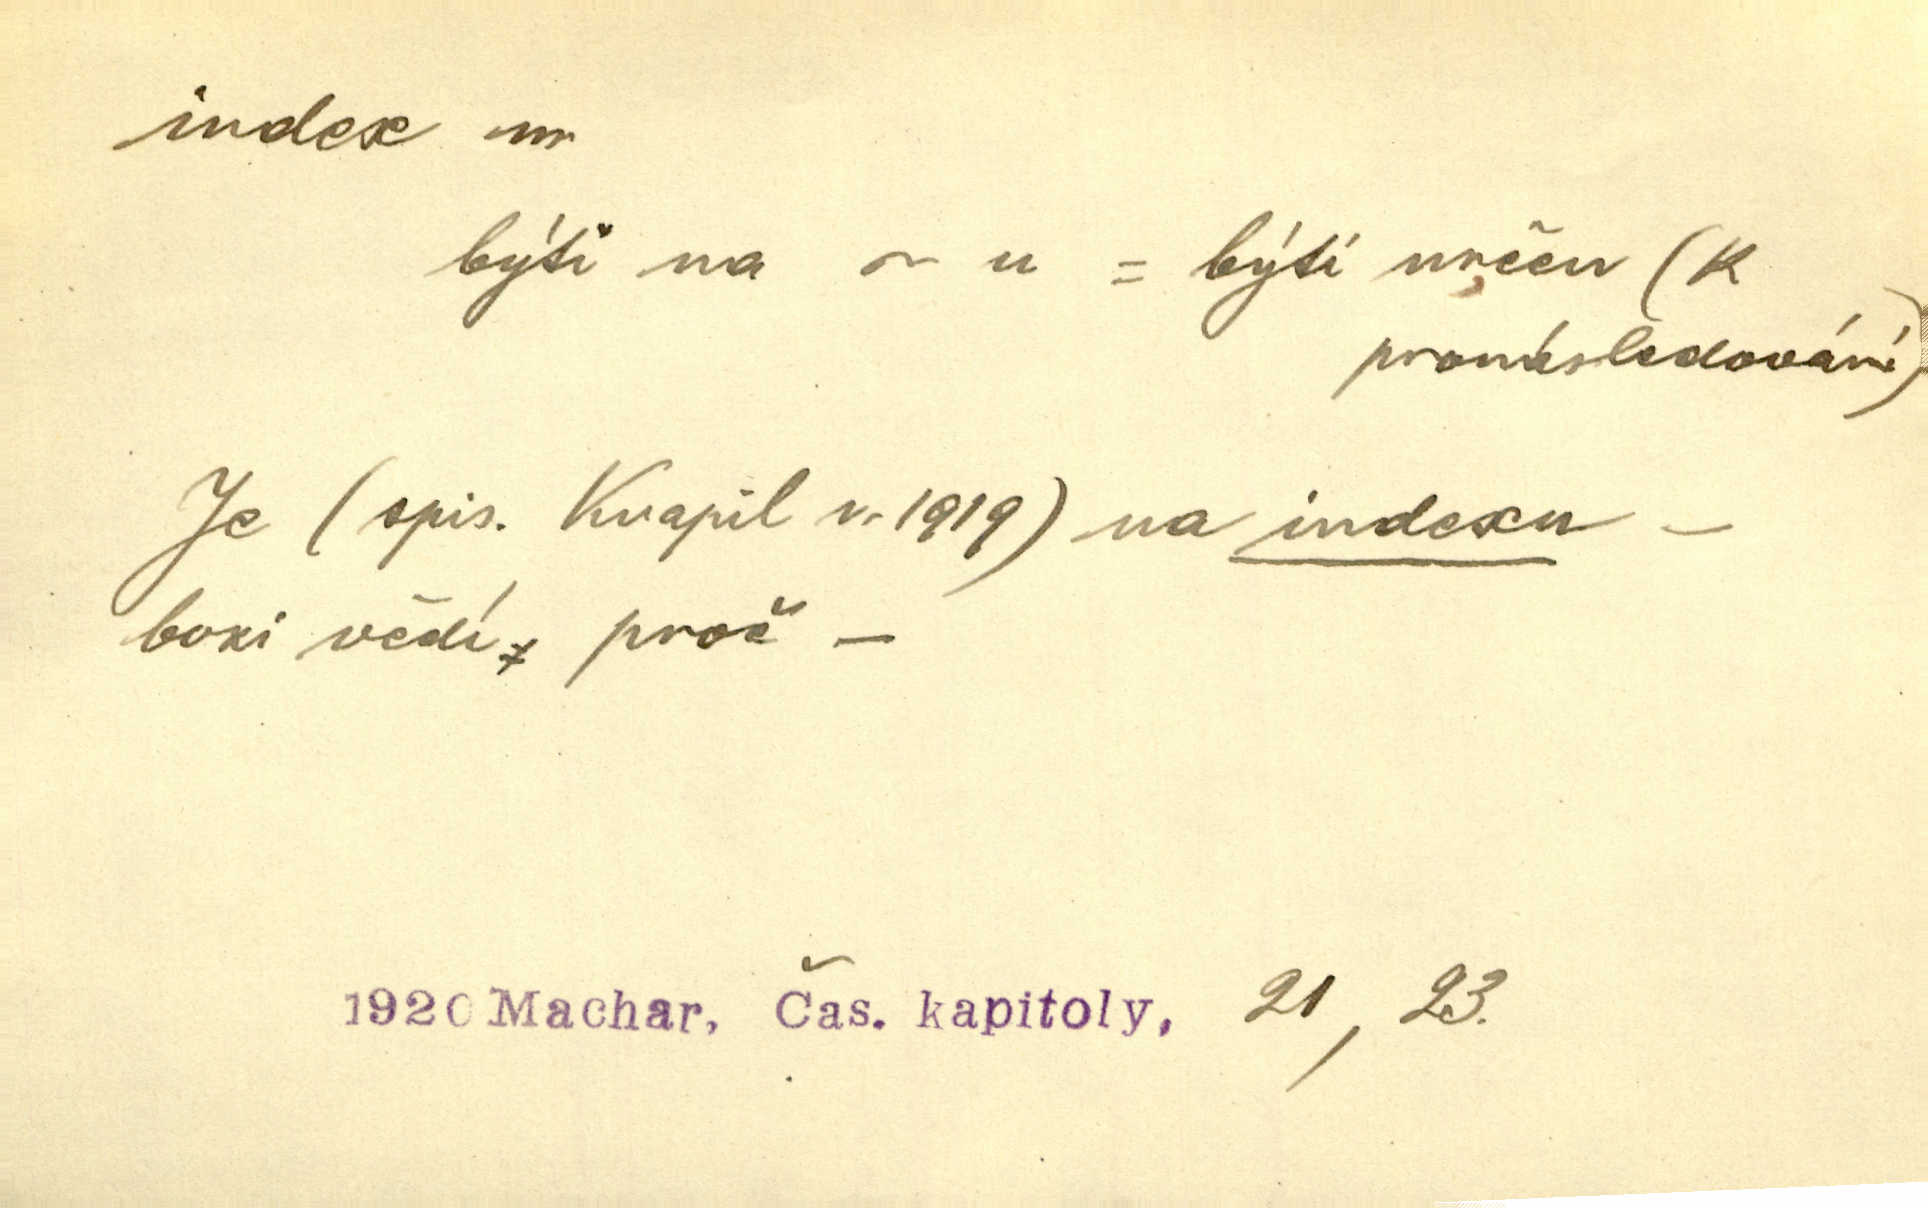 index m
býti na ~ u = býti určen (k
pronásledování)
Je (spis. Kvapil r. 1919) na indexu –
bozi vědí, proč –
1920 Machar, Čas. kapitoly, 21, 23.